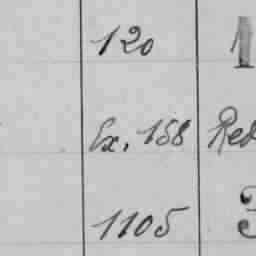 120 1
Ex. 158 Red
1105 3